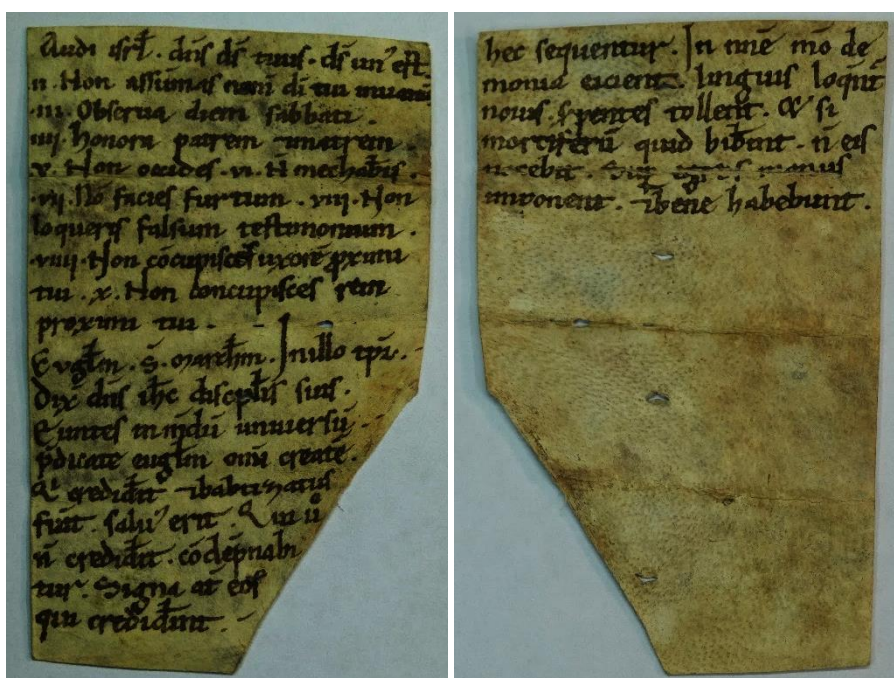 Audi isrł. dn̄s ds̄ tuus. ds̄ un' est.
ii. Non assumas nom̄ di tui in uanū
.iii. Obserua diem sabbati.
iiii. honora patrem ⁊matrem
.v. Non occides. vi. N̄ mechaberis.
.vii. Nō facies furtum. viii. Non
loqueris falsum testimonium.
.viiii. Non cōcupisces uxorē ꝓximi
tui. x. Non concupisces rem
proximi tui.
Evgłm. S. marcħm. In illo tp̄r.
Dix̄ dn̄s ih̄c discipłis suis.
Euntes in mūdū uniuersū
p̄dicate euglm̄ om̄i creatē.
Q' credid̄it ⁊babtizatus
fūit. salu' erit. Qui ū
n̄ credid̄it. cōdēpnabi
tur. Signa at̄ eos
qui credid̄unt.
hec sequentur. In nn̄e mō de
monia eicient. linguis loqn̄t
nouis. sꝑentes tollent. Et si
mortiferū quid bib̄int. n̄ eis
nocebit. Sup̄ egros manus
inponent. ⁊bene habebunt.